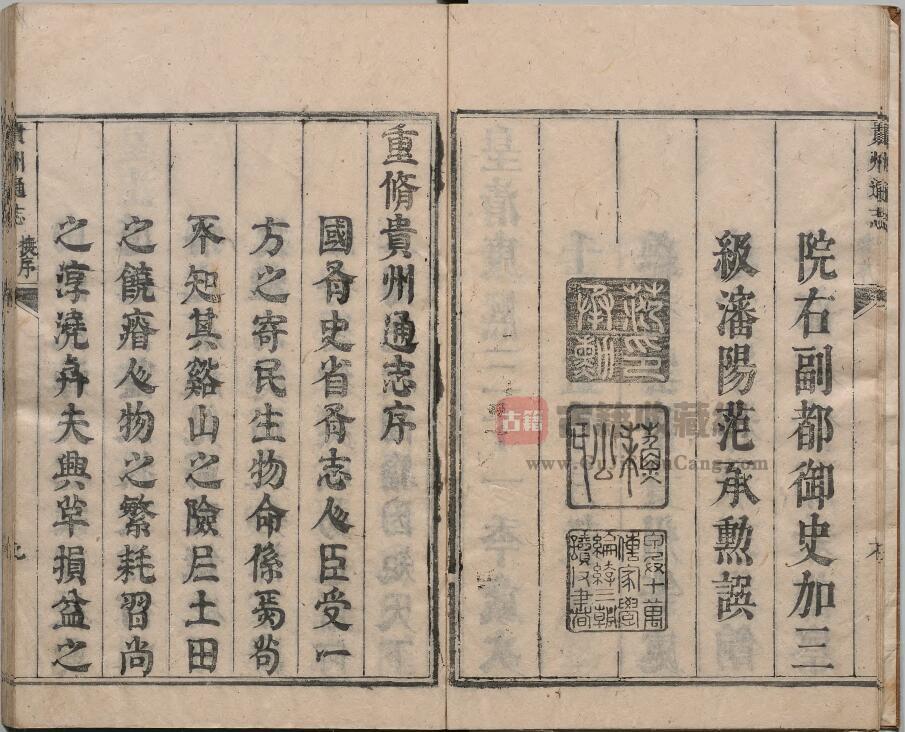 貴州通志
院右副都御史加三
級瀋陽范承勲譔
范印承勲
重脩貴州通志序
國有史省有志人臣受一
方之寄民生物命係焉茍
不知其谿山之險戹土田
之饒瘠人物之繁耗習尚
之淳澆與夫興革損益之
貴州通志
序
九
古籍
古籍收藏
www.GujiShouCang.com